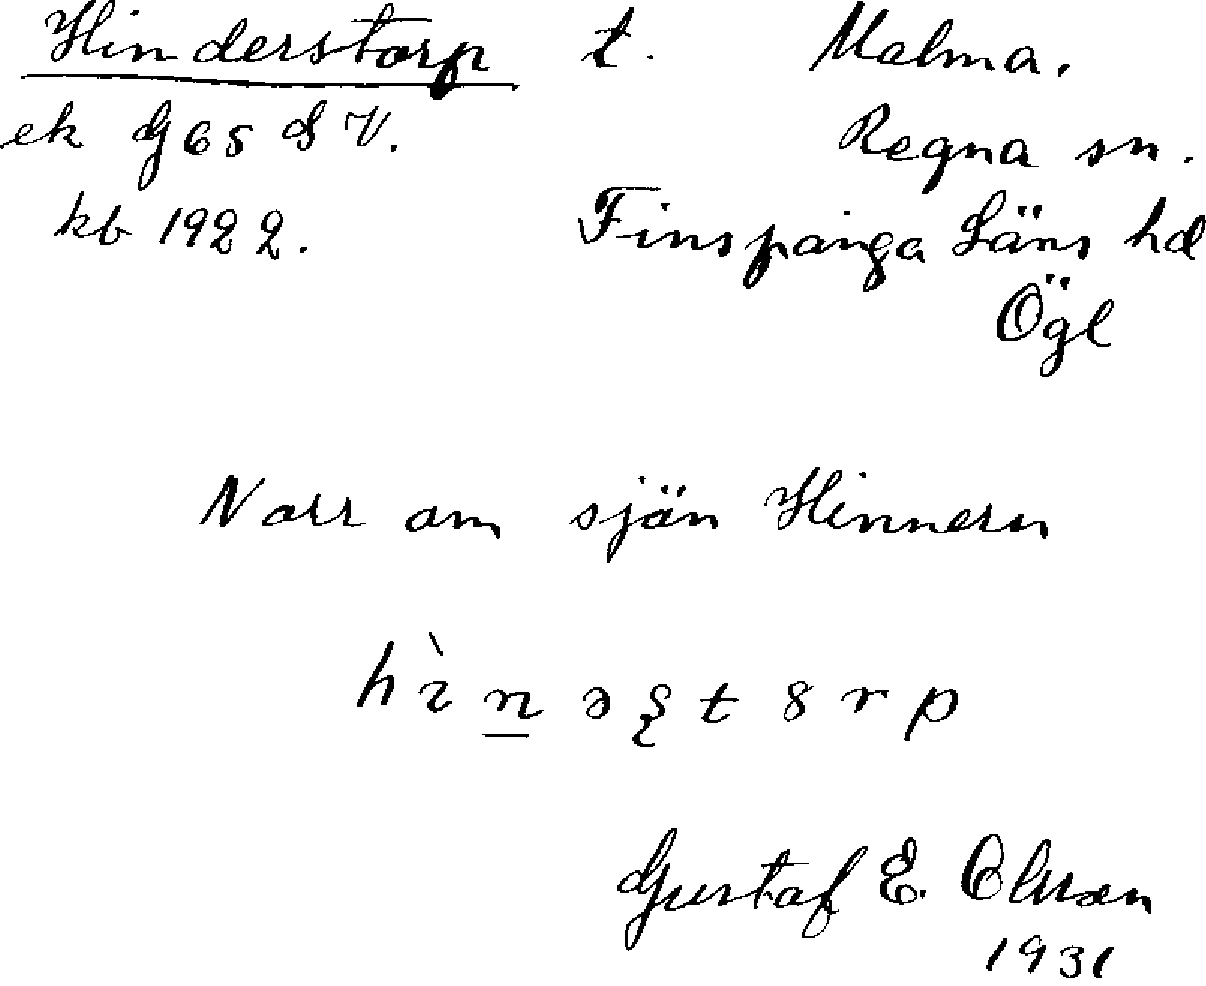 Hinderstorp t. Malma.
ek G 65 S V. Regna sn.
kb 1922. Finspånga Läns hd
Ögl
Norr om sjön Hinnern
hìn̲əşt8rp
Gustaf E. Olsson
1931